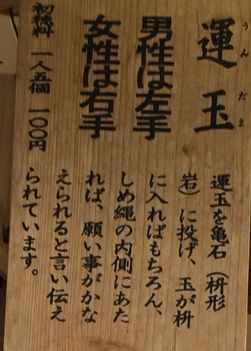 運玉
うんだま
男性は左手
女性は右手
初穂料 一人五個 一〇〇円
運玉を亀石(枡形
岩)に投げ、玉が枡
に入ればもちろん、
しめ縄の内側にあた
れば、願い事がかな
えられると言い伝え
られています。